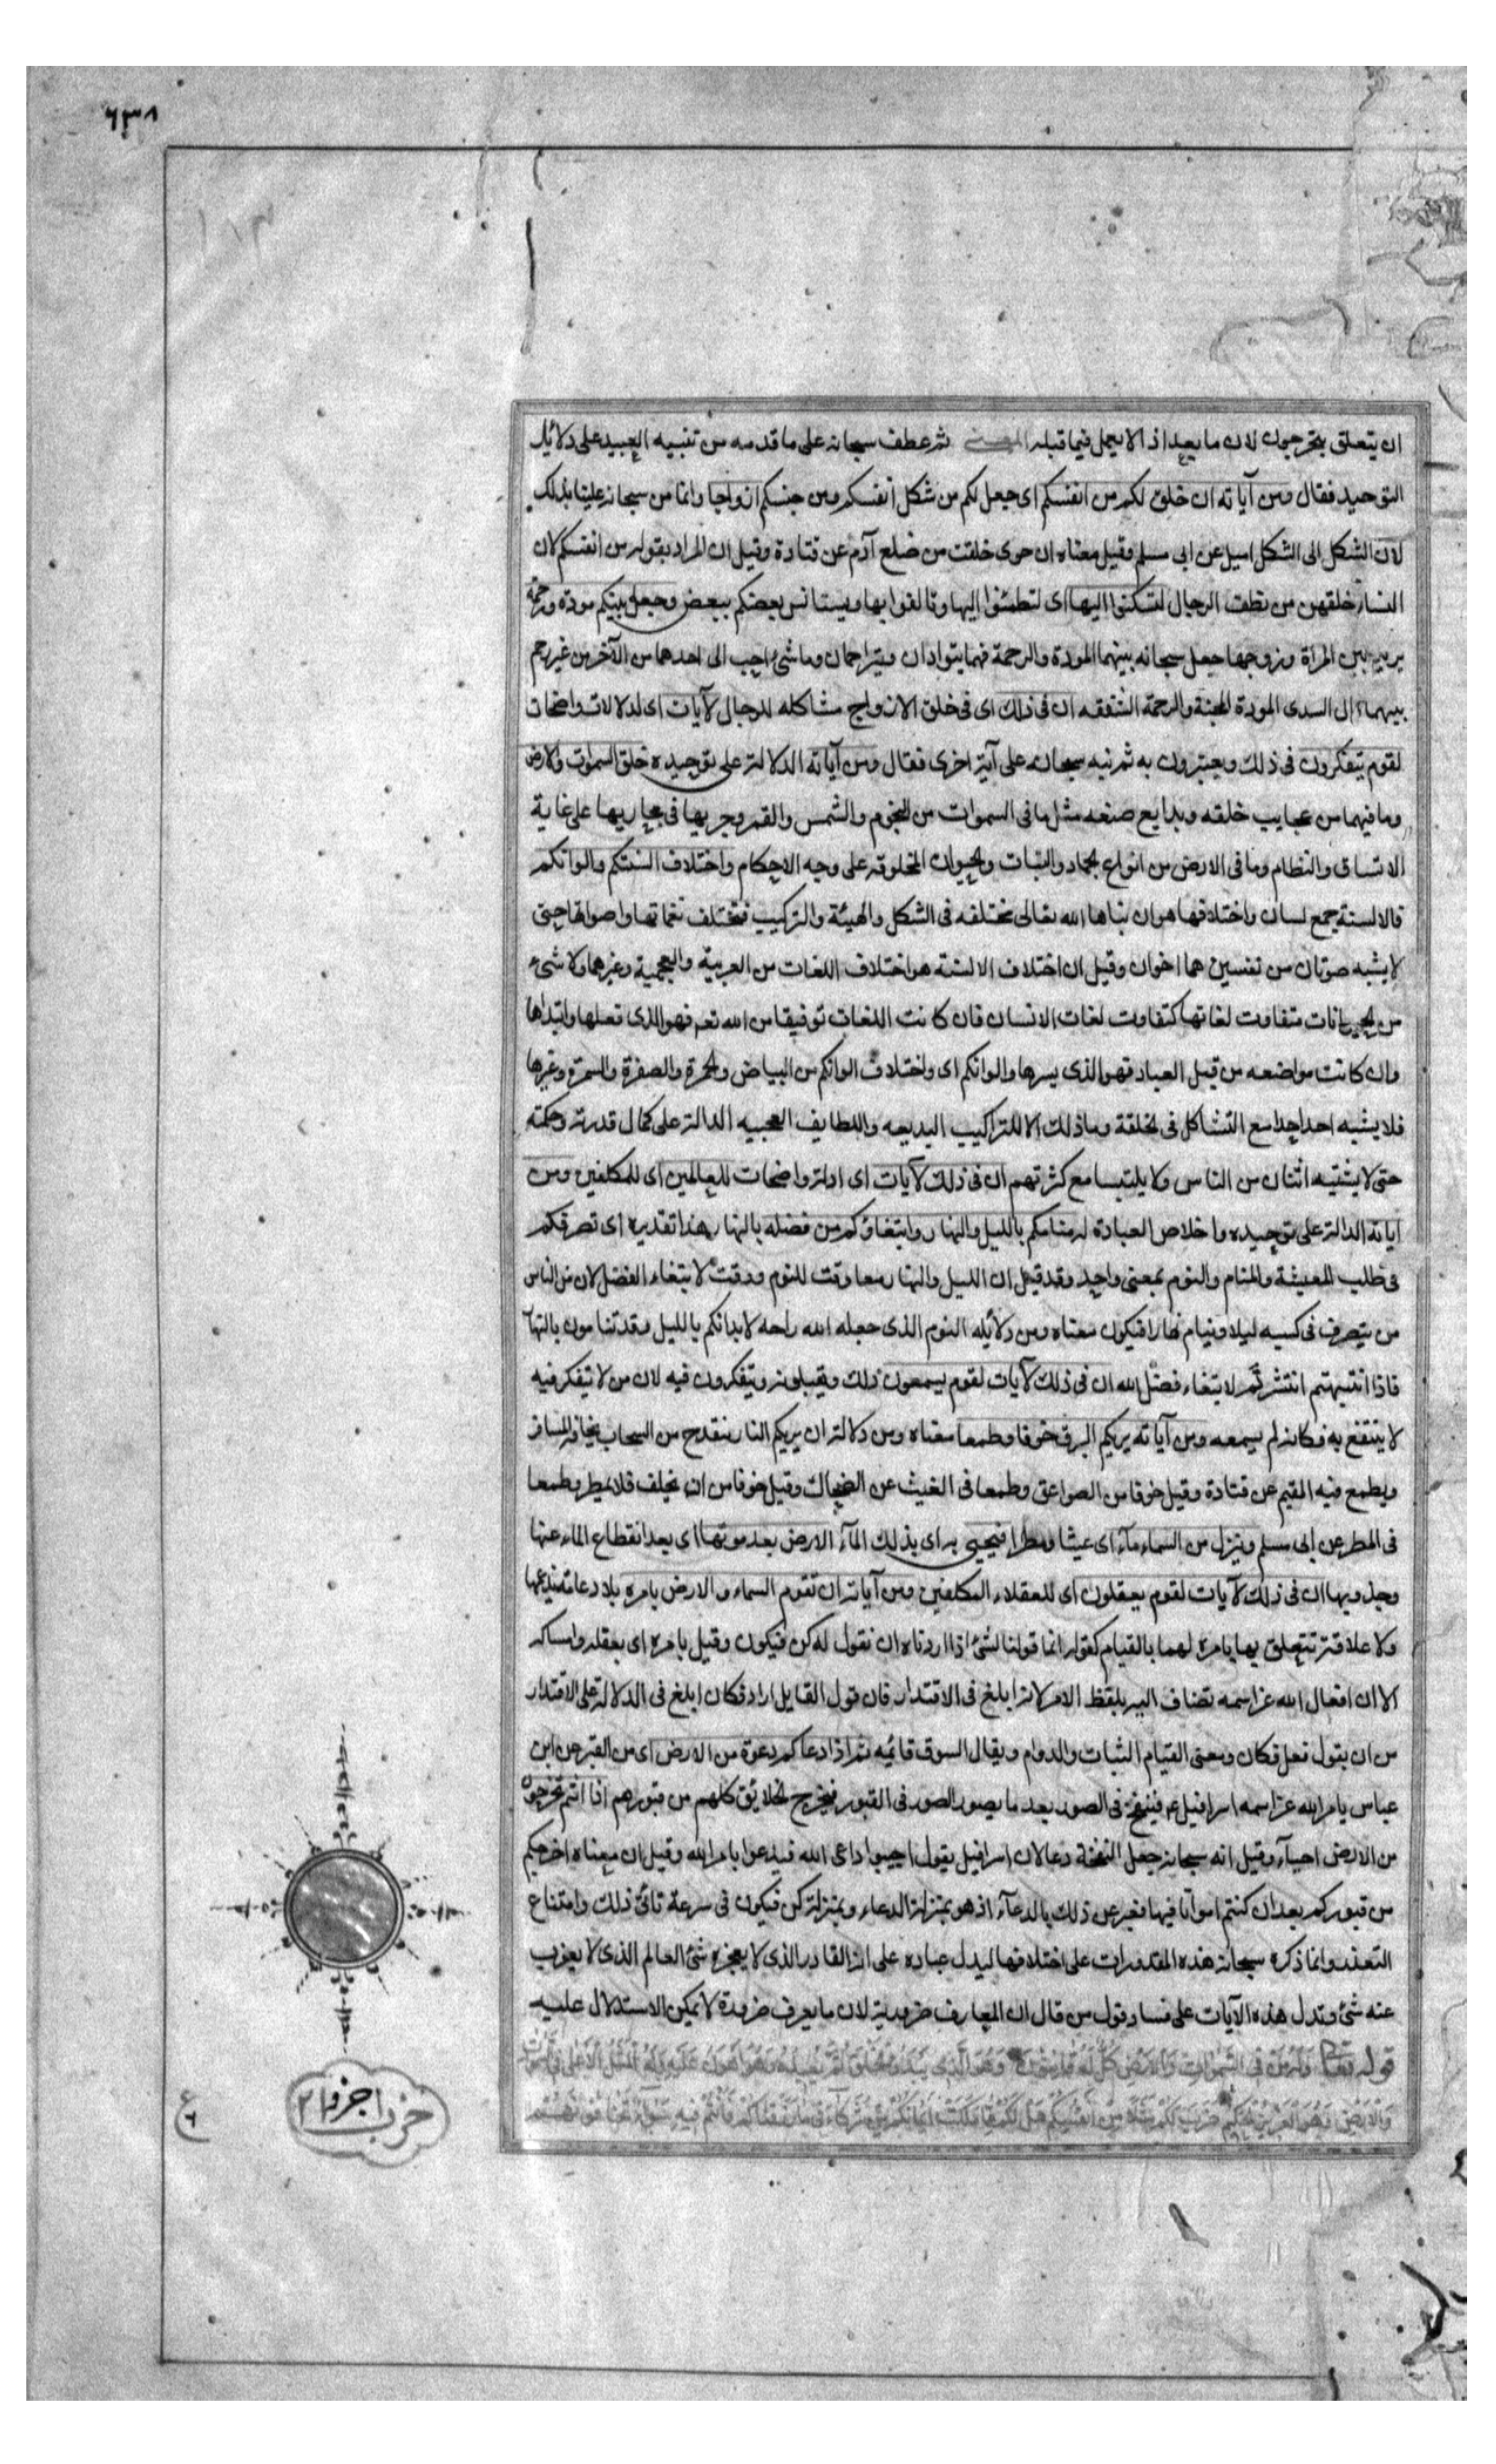 ٦٣٨
ان يتعلق بتخرجون لان ما بعد اذا لا يعمل فيما قبله المعنى ثم عطف سبحانه على ما قدمه من تنبيه العبيد على دلائل
التوحيد فقال ومن آياته ان خلق لكم من انفسكم اى جعل لكم من شكل انفسكم ومن جنسكم ازواجا وانما من سبحانه علينا بذلك
لان الشكل الى الشكل اميل عن ابى مسلم وقيل معناه ان حوى خلقت من ضلع آدم عن قتادة وقيل ان المراد بقوله من انفسكم لان
النساء خلقهن من نطف الرجال لتسكنوا اليها اى لتطمئنوا اليها وتالفوا بها ويستانس بعضكم ببعض وجعل بينكم مودة ورحمة
يريد بين المراة وزوجها جعل سبحانه بينهما المودة والرحمة فهما يتوادان ويتراحمان وما شئ احب الى احدهما من الآخر من غير رحم
بينهما قال السدى المودة المحبة والرحمة الشفقه ان فى ذلك اى فى خلق الازواج مشاكله للرجال لآيات اى لدلالات واضحات
لقوم يتفكرون فى ذلك ويعتبرون به ثم نبه سبحانه على آية اخرى فقال ومن آياته الدالة على توحيده خلق السموات والارض
وما فيهما من عجايب خلقه وبدايع صنعه مثل ما فى السموات من النجوم والشمس والقمر وجريها فى مجاريها على غاية
الاتساق والنظام وما فى الارض من انواع الجماد والنبات والحيوان المخلوقه على وجه الاحكام واختلاف السنتكم والوانكم
فالالسنة جمع لسان واختلافها هو ان بناها الله تعالى مختلفه فى الشكل والهيئة والتركيب فتختلف نغماتها واصواتها حتى
لا يشبه صوتان من نفسين هما اخوان وقيل ان اختلاف الالسنة هو اختلاف اللغات من العربية والعجمية وغيرهما ولا شىء
من الحيوانات متفاوت لغاتها كتفاوت لغات الانسان فان كانت اللغات توفيقا من الله تعم فهو الذى فعلها وابتداها
وان كانت مواضعه من قبل العباد فهو الذى يسرها والوانكم اى واختلاف الوانكم من البياض والحمرة والصفرة والسمرة وغيرها
فلا يشبه احد احدا مع التشاكل فى الخلقة وما ذلك الا للتراكيب البديعه واللطايف العجيبه الدالة على كمال قدرته وحكمته
حتى لا يشتبه اثنان من الناس ولا يلتبسا مع كثرتهم ان فى ذلك لآيات اى ادلة واضحات للعالمين اى للمكلفين ومن
اياته الدالة على توحيده واخلاص العبادة له منامكم بالليل والنهار وابتغاؤكم من فضله بالنهار هذا تقديره اى تصرفكم
فى طلب المعيشة والمنام والنوم بمعنى واحد وقد قيل ان الليل والنهار معا وقت للنوم ووقت لابتغاء الفضل لان من الناس
من يتصرف فى كسبه ليلا وينام نهارا فيكون معناه ومن دلائله النوم الذى جعله الله راحه لابدانكم بالليل وقد تنامون بالنهار
فاذا انتبهتم انتشرتم لابتغاء فضل الله ان فى ذلك لآيات لقوم يسمعون ذلك ويقبلونه ويتفكرون فيه لان من لا يتفكر فيه
لا ينتفع به فكانه لم يسمعه ومن آياته يريكم البرق خوفا وطمعا معناه ومن دلالته ان يريكم النار تنقدح من السحاب يخافه المسافر
ويطمع فيه المقيم عن قتادة وقيل خوفا من الصواعق وطمعا فى الغيث عن الضحاك وقيل خوفا من ان يخلف فلا يمطر وطمعا
فى المطر عن ابى مسلم وينزل من السماء ماء اى غيثا ومطرا فيحيى به اى بذلك المآء الارض بعد موتها اى بعد انقطاع الماء عنها
وجدوبها ان فى ذلك لآيات لقوم يعقلون اى للعقلاء المكلفين ومن آياته ان تقوم السماء والارض بامره بلا دعامة تدعمها
ولا علاقة تتعلق بها بامره لهما بالقيام كقوله انما قولنا لشئ اذا اردناه ان نقول له كن فيكون وقيل بامره اى بفعله وامساكه
الا ان افعال الله عز اسمه تضاف اليه بلفظ الامر لانه ابلغ فى الاقتدار فان قول القايل اراد فكان ابلغ فى الدلالة على الاقتدار
من ان يقول فعل فكان ومعنى القيام الثبات والدوام ويقال السوق قائمه ثم اذا دعاكم دعوة من الارض اى من القبر عن ابن
عباس يامر الله عز اسمه اسرافيل ع فينفخ فى الصور بعد ما يصور الصور فى القبور فيخرج الخلائق كلهم من قبورهم اذا انتم تخرجون
من الارض احيآء وقيل انه سبحانه جعل النفخة دعا لان اسرافيل يقول اجيبوا داعى الله فيدعوا بامر الله وقيل ان معناه اخرجكم
من قبوركم بعد ان كنتم امواتا فيها فعبر عن ذلك بالدعآء اذ هو بمنزلة الدعاء وبمنزلة كن فيكون فى سرعة تاتى ذلك وامتناع
التعذر وانما ذكره سبحانه هذه المقدورات على اختلافها ليدل عباده على انه القادر الذى لا يعجزه شئ العالم الذى لا يعزب
عنه شئ وتدل هذه الآيات على فساد قول من قال ان المعارف ضرورية لان ما يعرف ضرورة لا يمكن الاستدلال عليه
قوله تعالى وَلَهُ مَنْ فِى السَّمٰوَاتِ وَالْاَرْضِ كُلٌّ لَهُ قَانِتُونَ وَهُوَ الَّذِى يَبْدَؤُا الْخَلْقَ ثُمَّ يُعِيدُهُ وَهُوَ اَهْوَنُ عَلَيْهِ وَلَهُ الْمَثَلُ الْاَعْلٰى فِى السَّمٰوَاتِ
وَالْاَرْضِ وَهُوَ الْعَزِيزُ الْحَكِيمُ ضَرَبَ لَكُمْ مَثَلًا مِنْ اَنْفُسِكُمْ هَلْ لَكُمْ مِمَّا مَلَكَتْ اَيْمَانُكُمْ مِنْ شُرَكَاءَ فِى مَا رَزَقْنَاكُمْ فَاَنْتُمْ فِيهِ سَوَاءٌ تَخَافُونَهُمْ
حزب اجزو ٢١
ع
٦